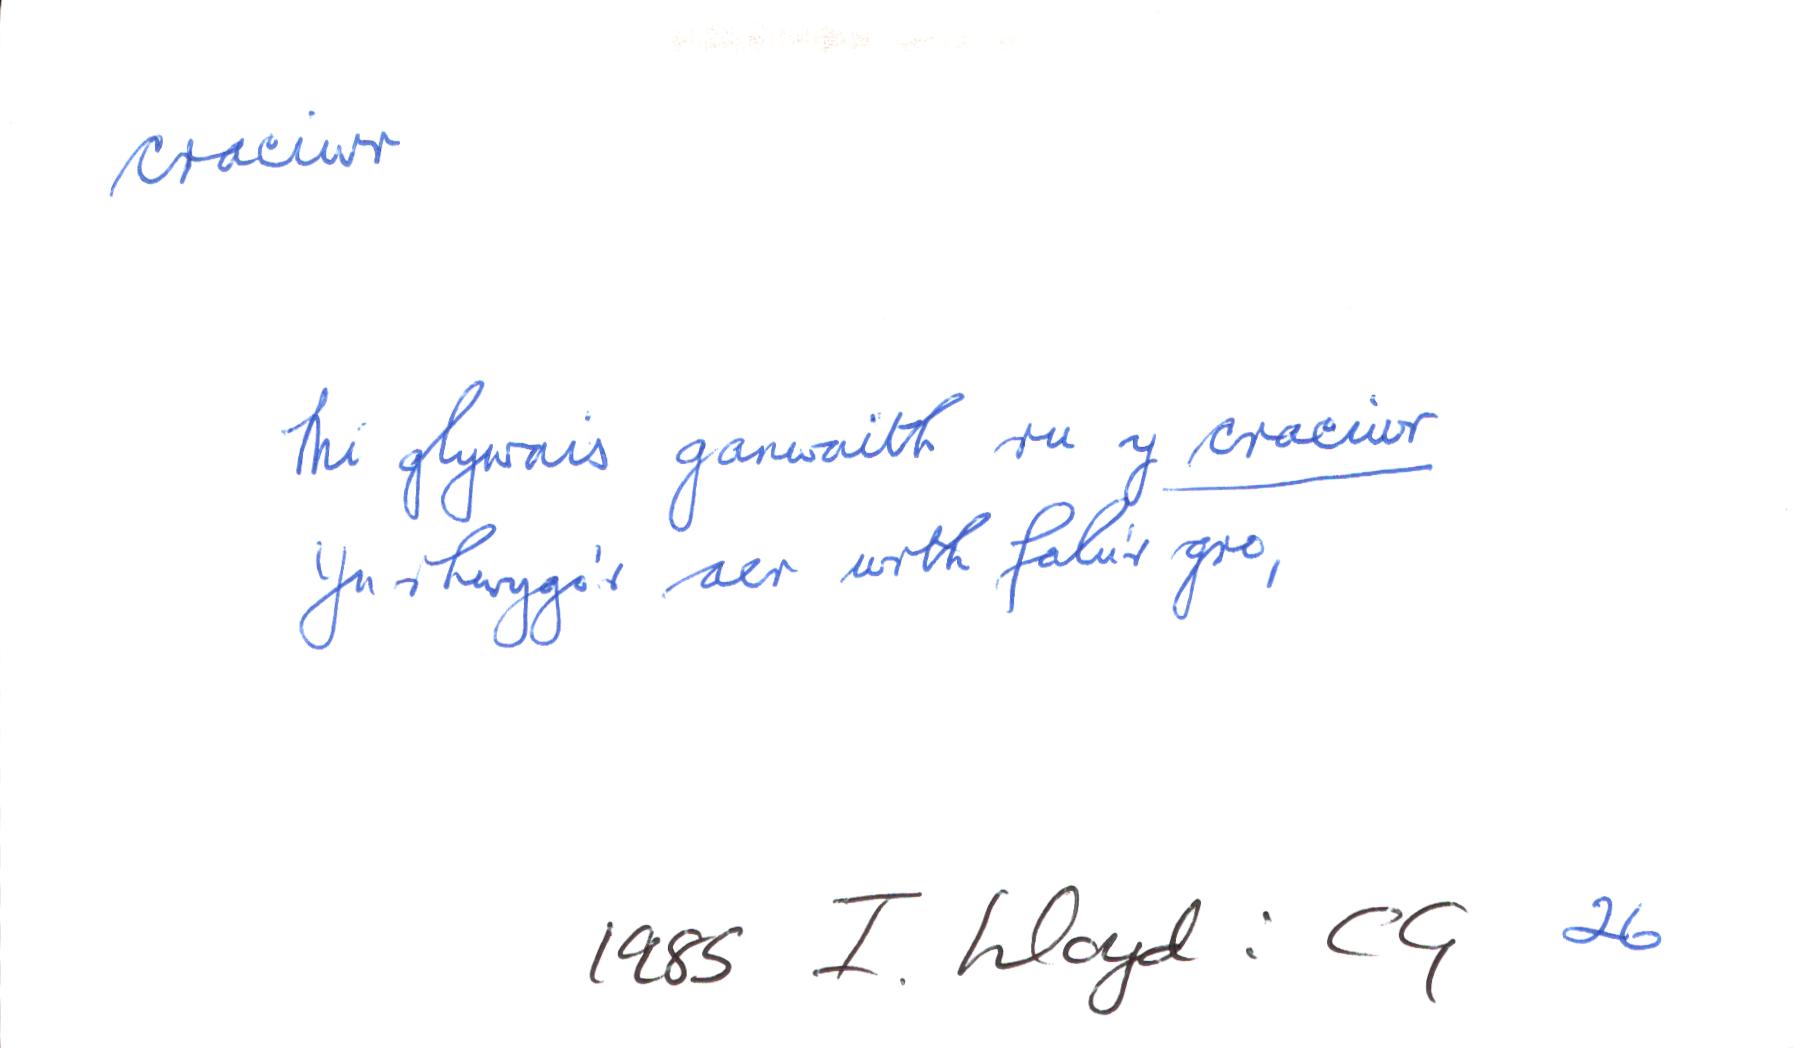 craciwr
Mi glywais ganwaith ru y craciwr
Yn rhwygo'r aer wrth falu'r gro,
1985 I. Lloyd: CG 26